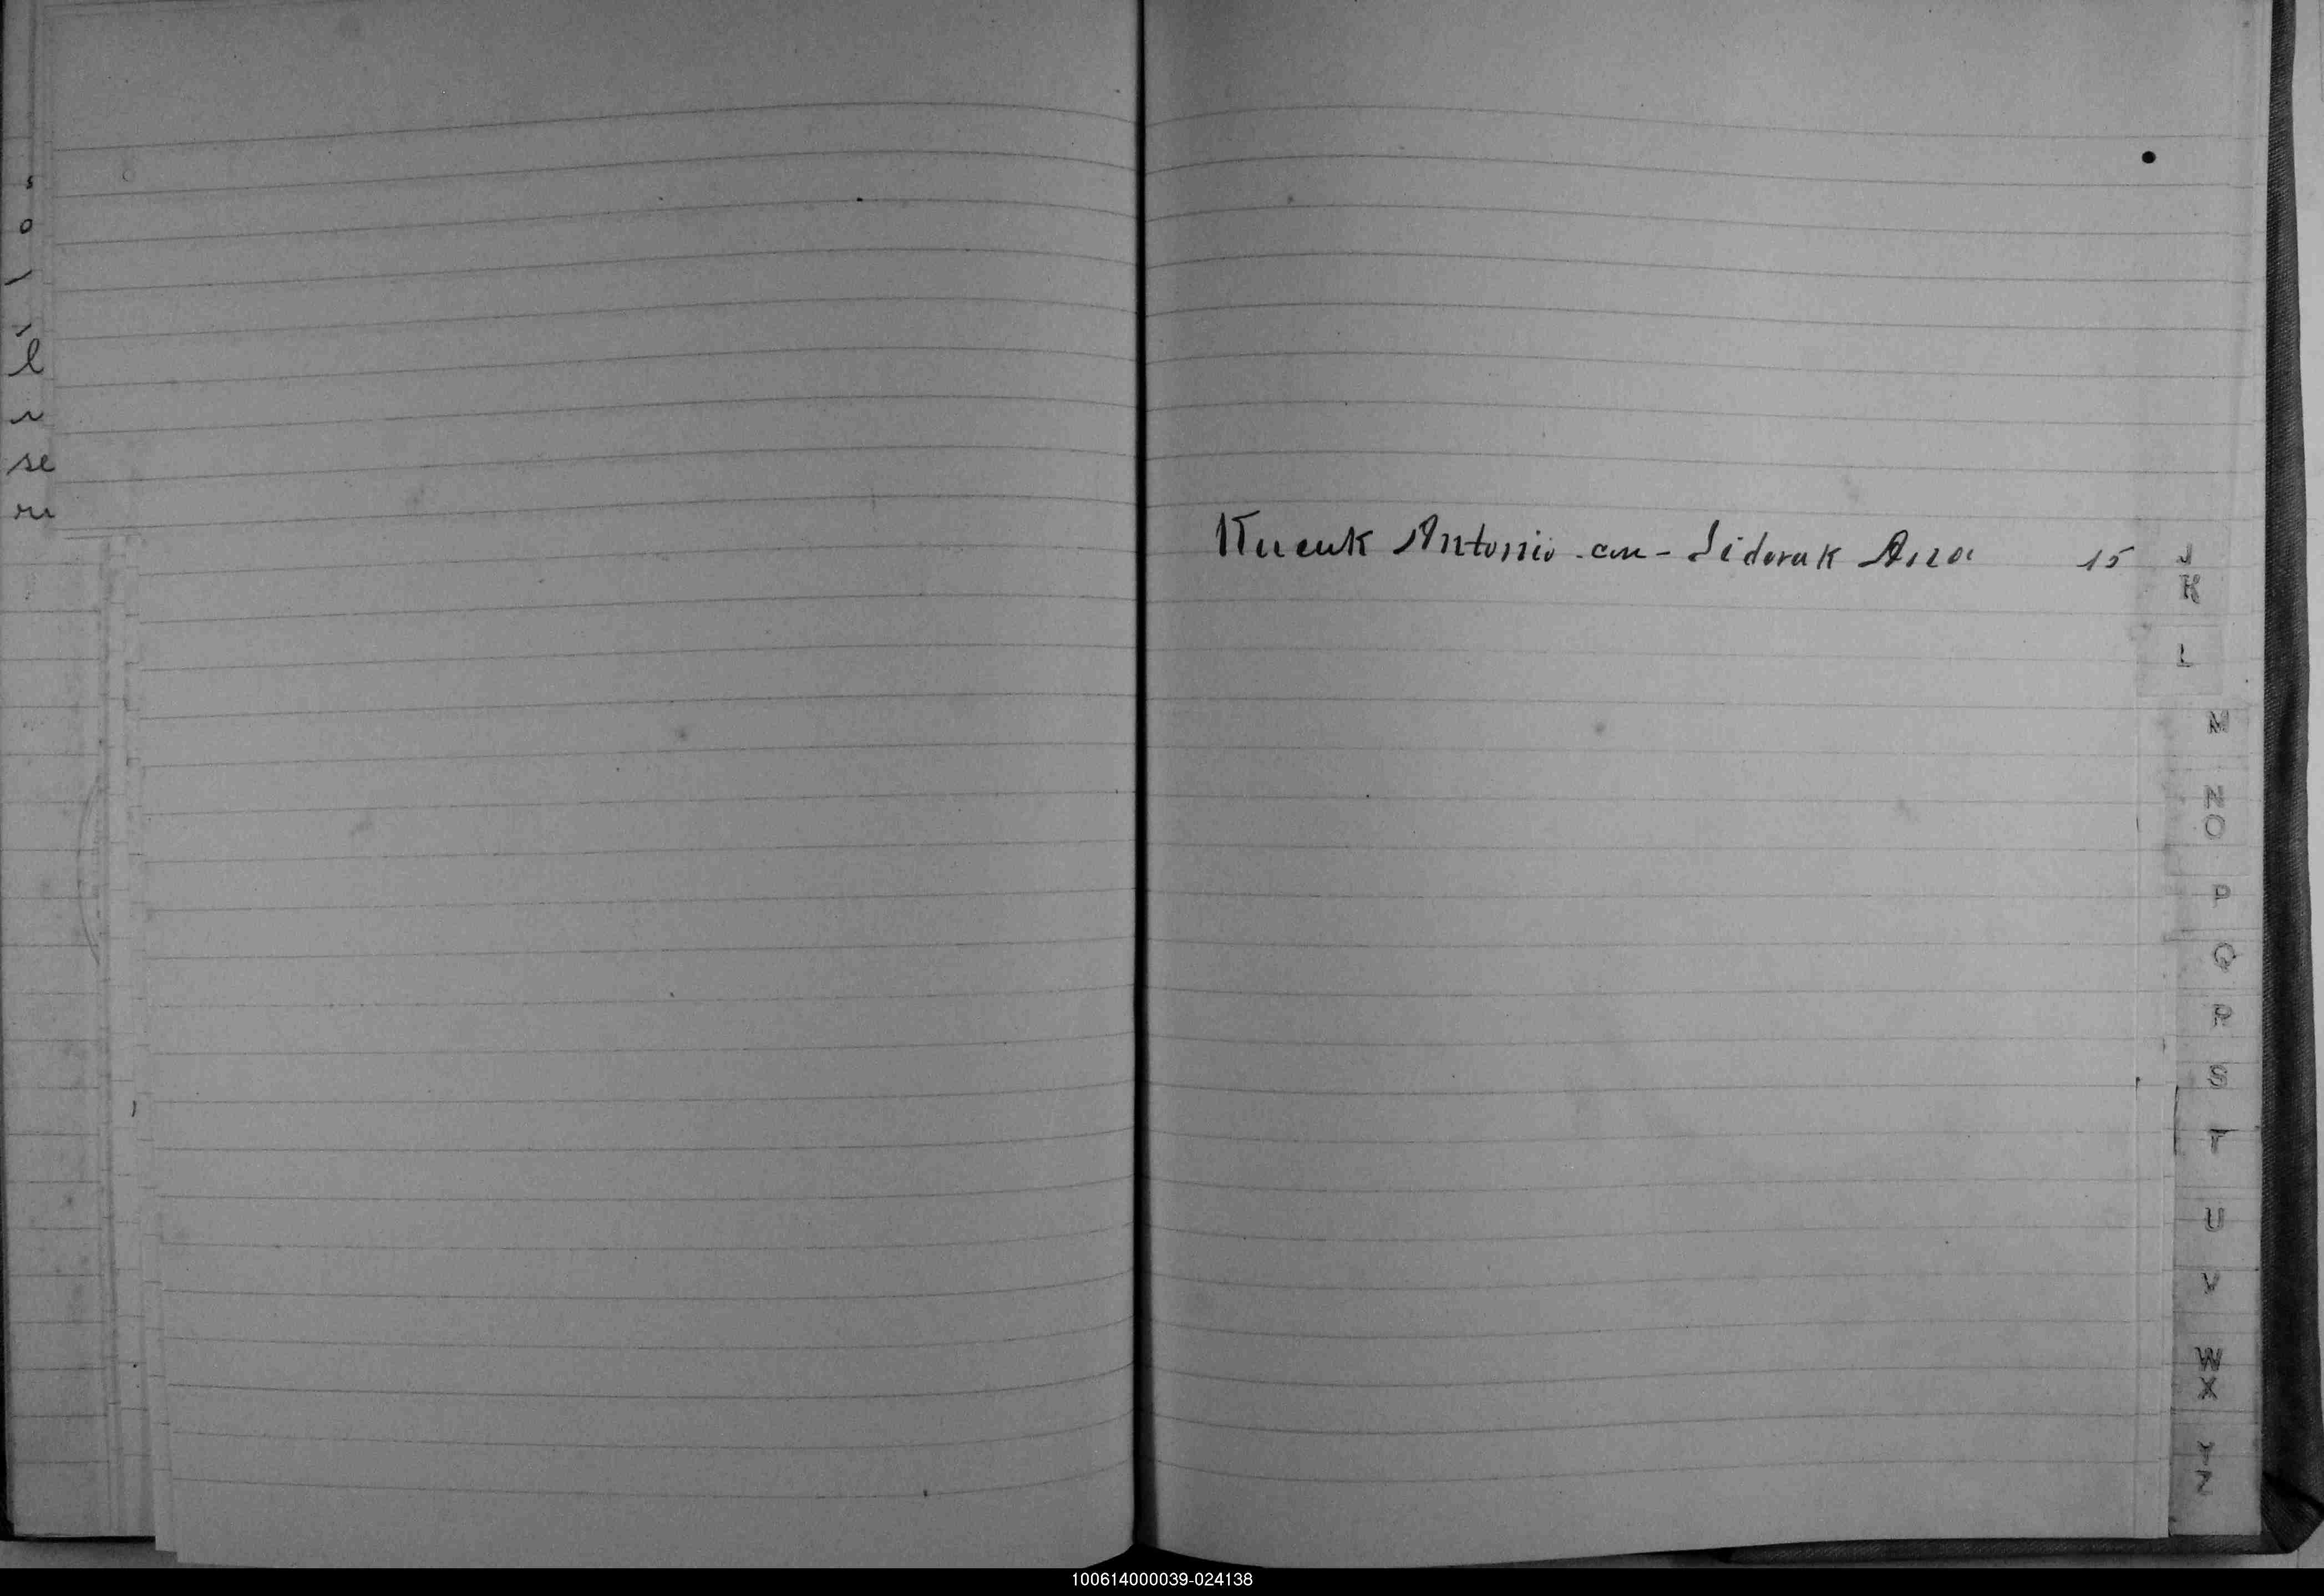 s
o
l
se
ru
Kucuk Antonio - con - Sidoruk Ana 15
J
K
L
M
N
O
P
Q
R
S
T
U
V
W
X
Y
Z
100614000039-024138